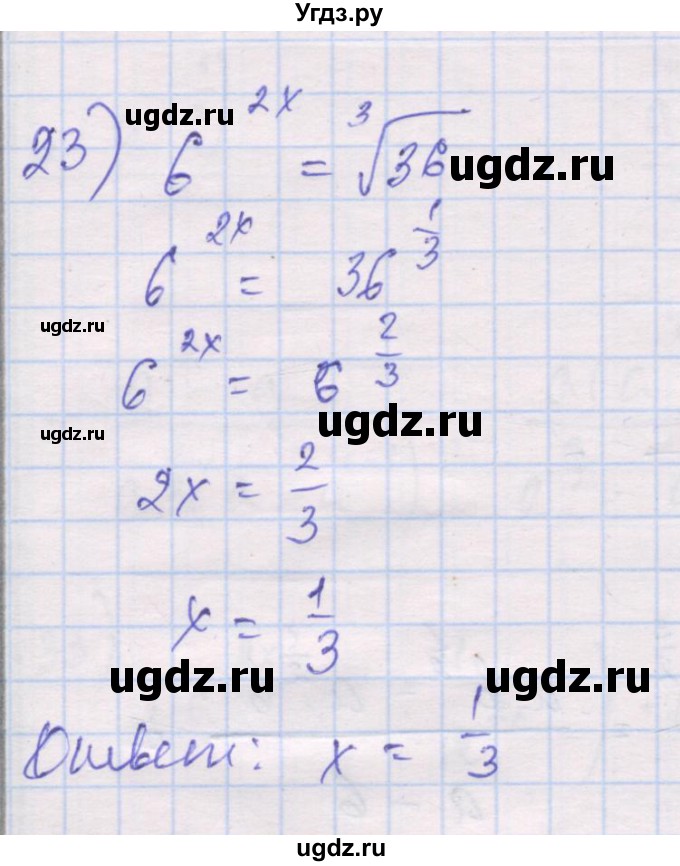 Угдз.ру
23) 6^{2x} = ∛36
ugdz.ru ugdz.ru
6^{2x} = 36^{1/3}
ugdz.ru
6^{2x} = 6^{2/3}
ugdz.ru ugdz.ru
2x = 2/3
x = 1/3
ugdz.ru ugdz.ru
Ответ: x = 1/3
ugdz.ru